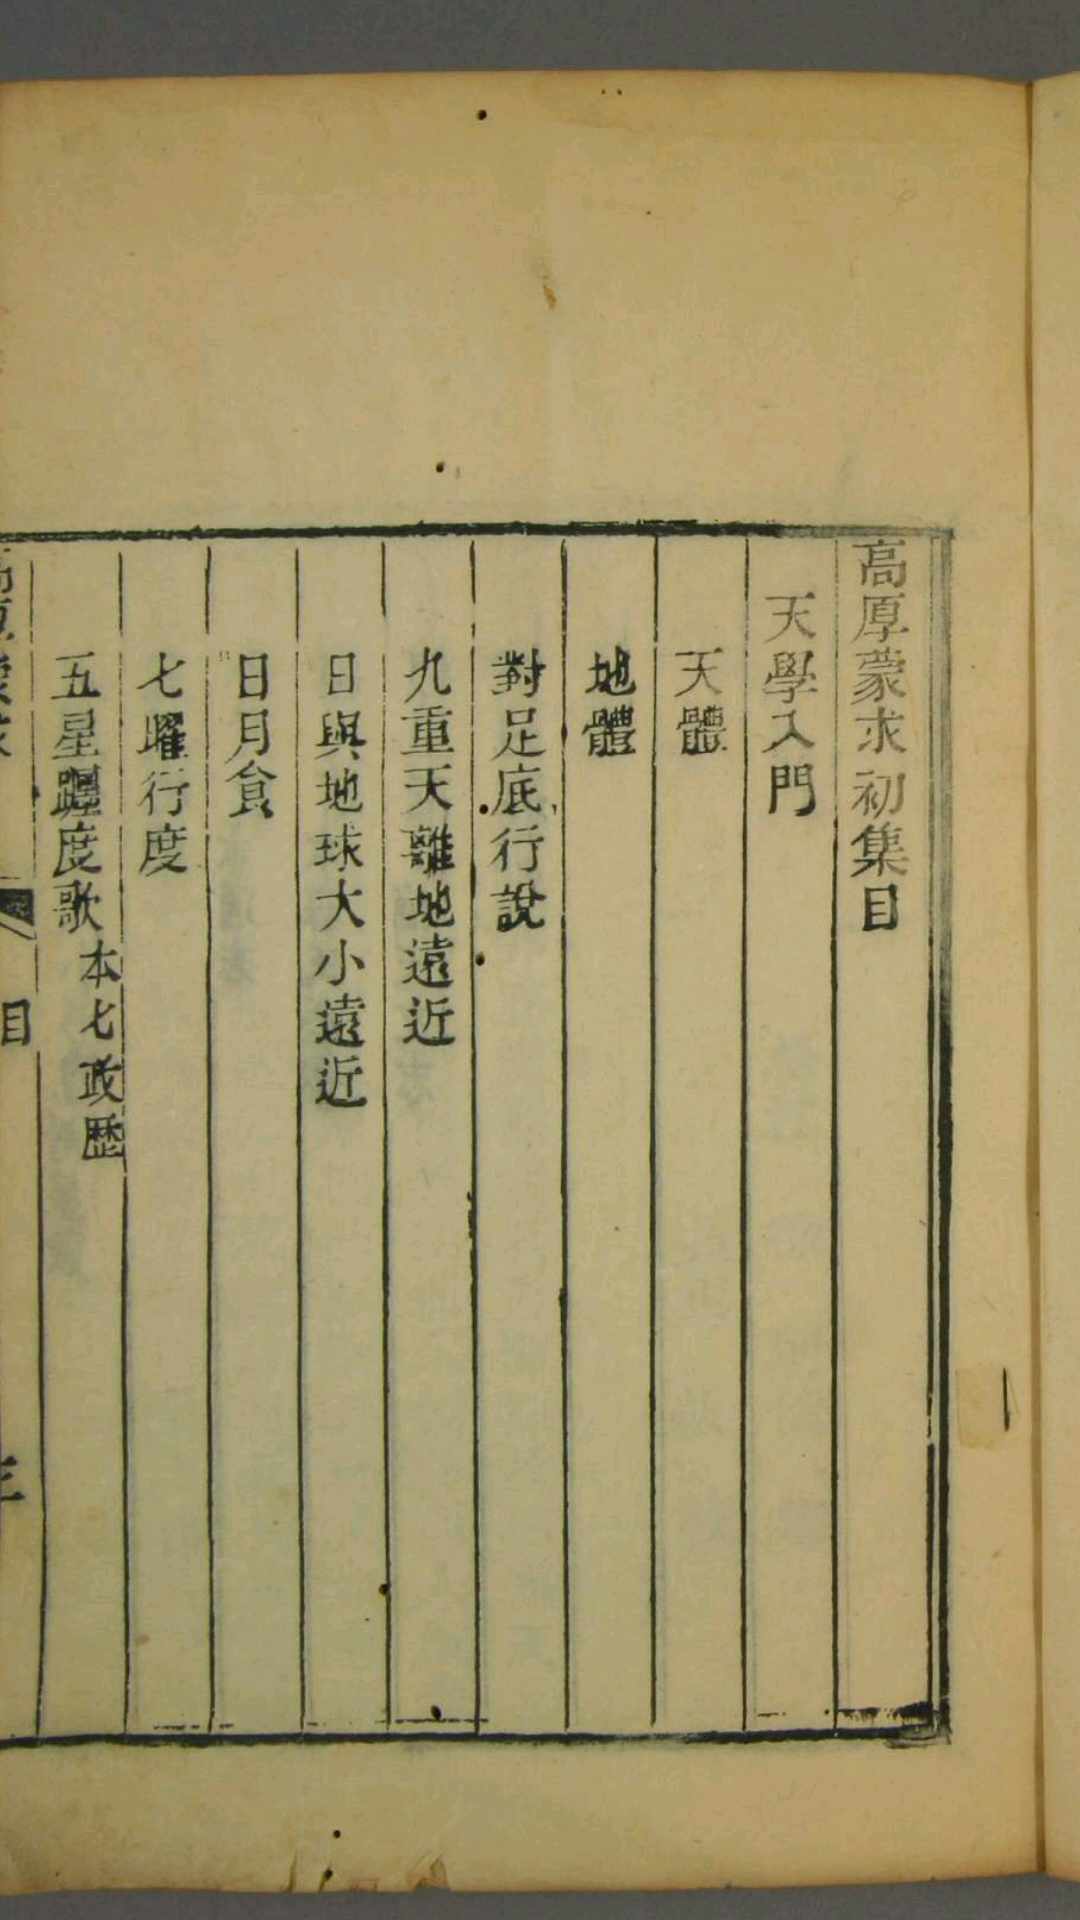 高厚蒙求初集目
天學入門
天體
地體
對足底行說
九重天離地遠近
日與地球大小遠近
日月食
七曜行度
五星躔度歌本七政歷
高厚蒙求
目